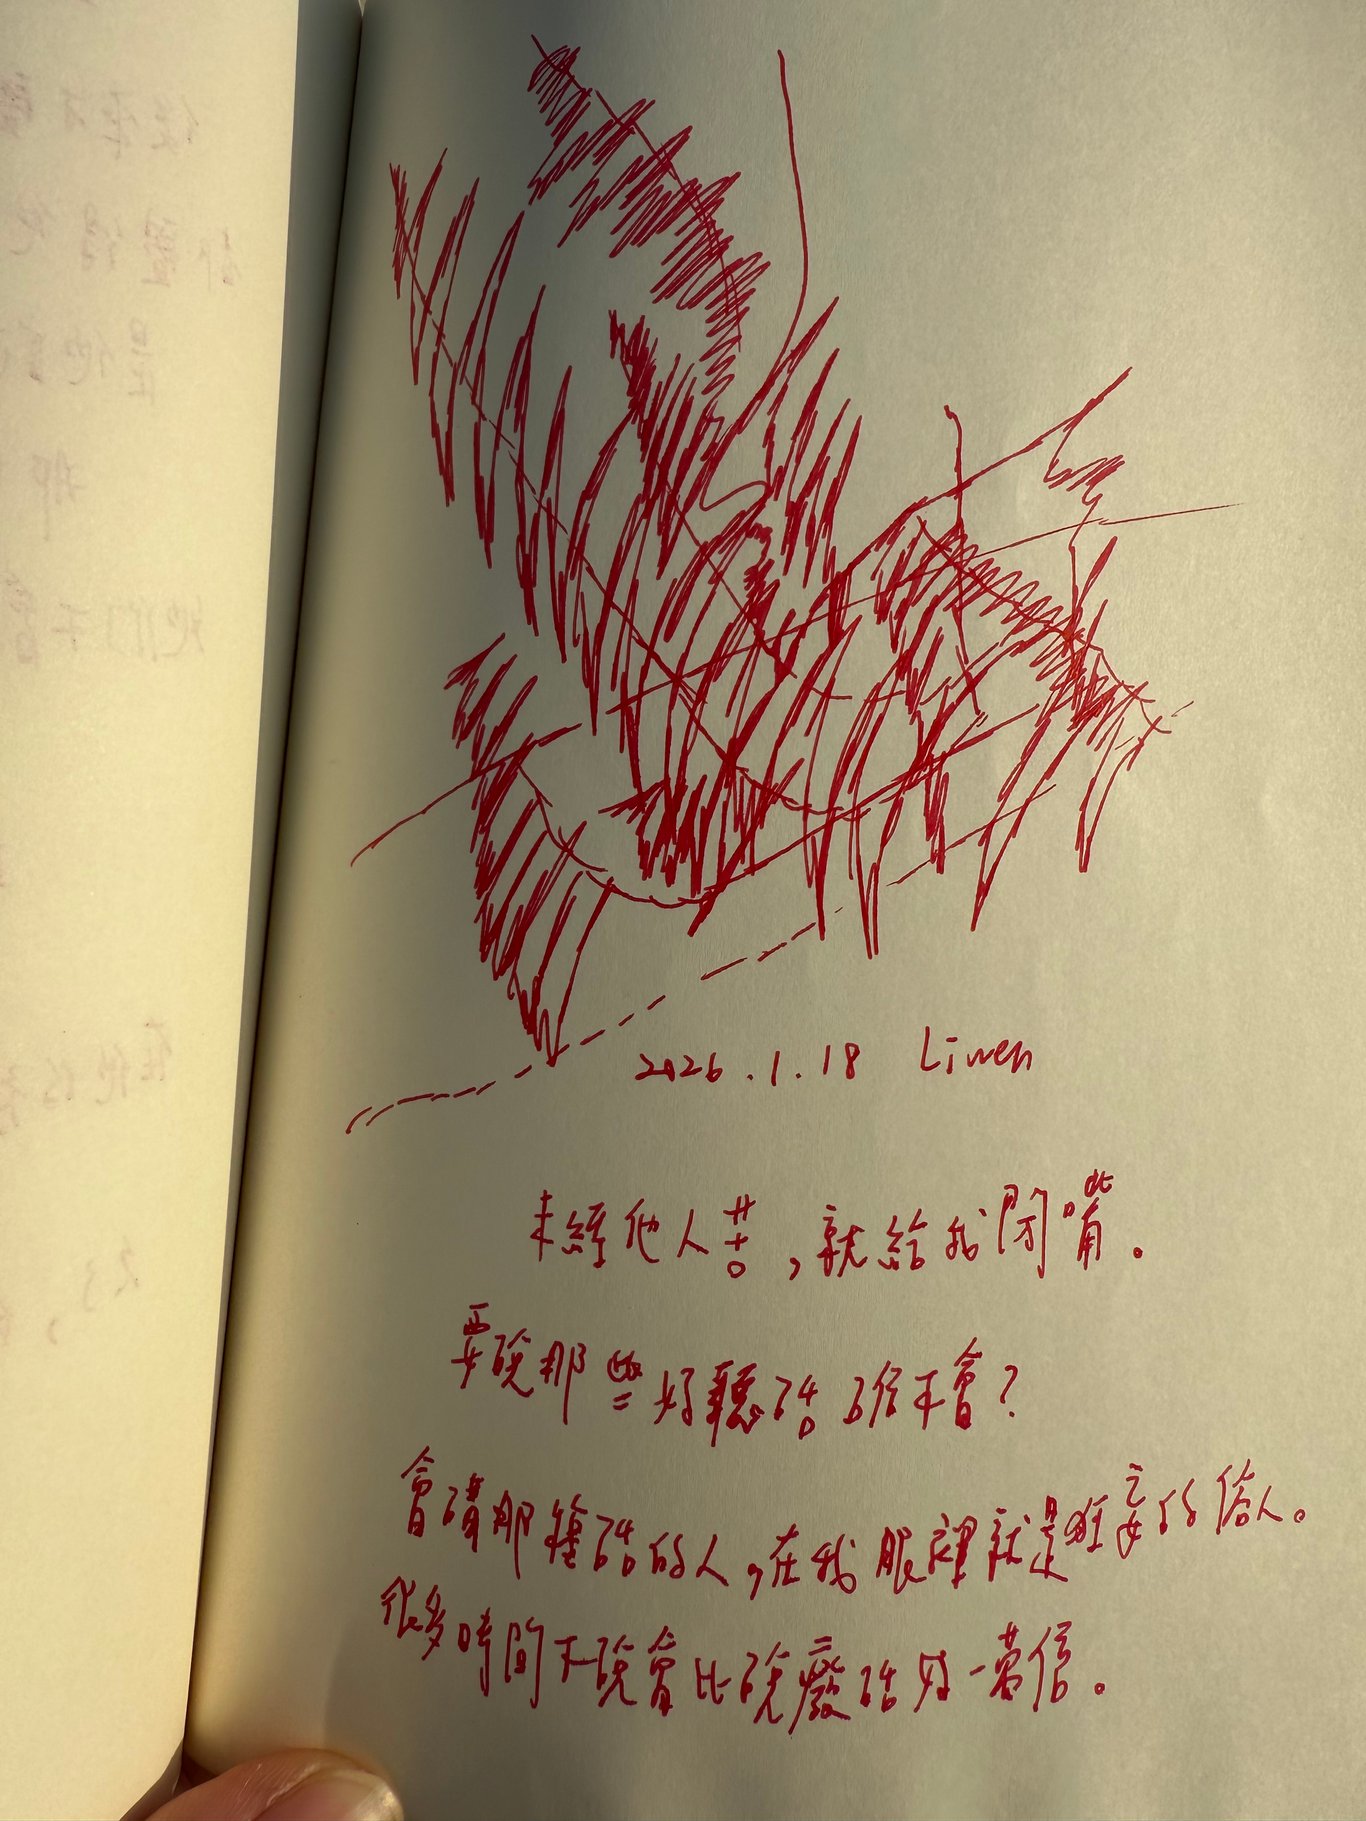 2026.1.18 Liwen
未經他人苦，就給我閉嘴。
要說那些好聽話 誰不會？
會講那種話的人，在我眼裡就是狂妄的俗人。
很多時間不說會比說廢話好一萬倍。